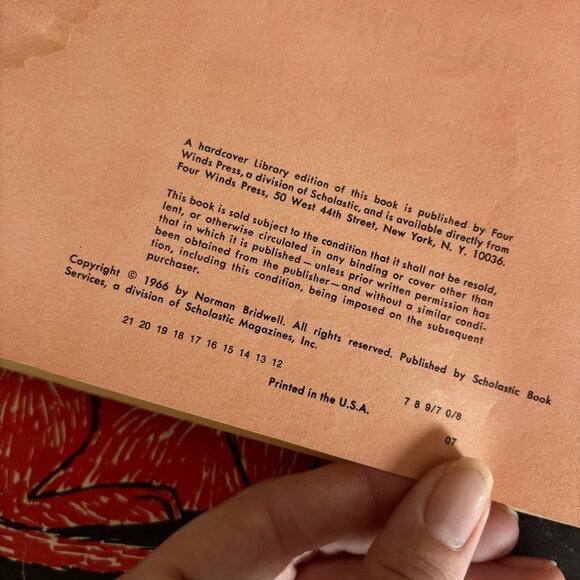 A hardcover Library edition of this book is published by Four
Winds Press, a division of Scholastic, and is available directly from
Four Winds Press, 50 West 44th Street, New York, N. Y. 10036.
This book is sold subject to the condition that it shall not be resold,
lent, or otherwise circulated in any binding or cover other than
that in which it is published—unless prior written permission has
been obtained from the publisher—and without a similar condi-
tion, including this condition, being imposed on the subsequent
purchaser.
Copyright © 1966 by Norman Bridwell. All rights reserved. Published by Scholastic Book
Services, a division of Scholastic Magazines, Inc.
21 20 19 18 17 16 15 14 13 12 7 8 9/7 0/8
Printed in the U.S.A. 07